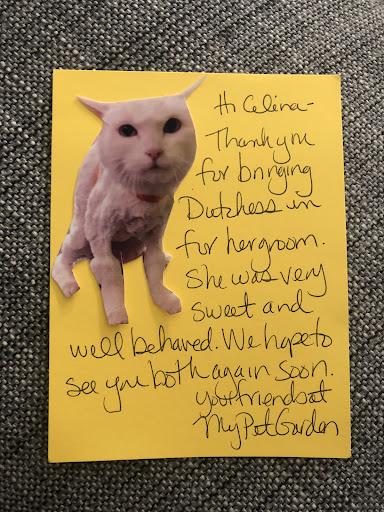 Hi Celina-
Thank you
for bringing
Dutchess in
for her groom.
She was very
sweet and
well behaved. We hope to
see you both again soon.
your friends at
My Pet Garden